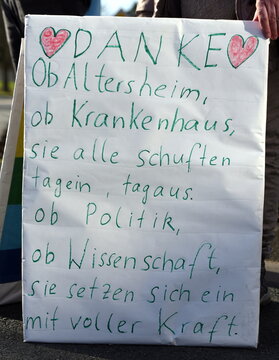 DANKE
Ob Altersheim,
ob Krankenhaus,
sie alle schuften
tagein, tagaus.
ob Politik,
ob Wissenschaft,
sie setzen sich ein
mit voller Kraft.